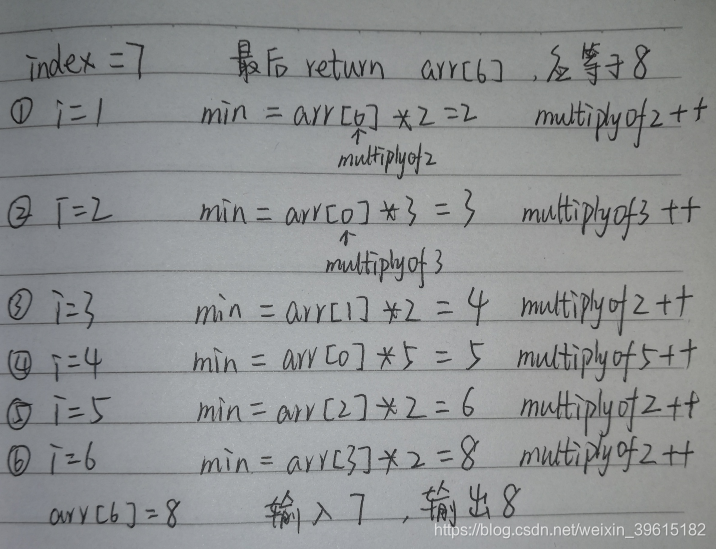 index =7 最后 return arr[6] , 应等于8
① i=1 min = arr[0] *2 =2 multiplyof2 ++
↑
multiplyof2
② i=2 min = arr[0] *3 = 3 multiplyof3 ++
↑
multiplyof3
③ i=3 min = arr[1] *2 = 4 multiplyof2++
④ i=4 min = arr[0] *5 = 5 multiplyof5++
⑤ i=5 min = arr[2] *2 = 6 multiplyof2++
⑥ i=6 min = arr[3] *2 = 8 multiplyof2++
arr[6] = 8 输入7 , 输出8
https://blog.csdn.net/weixin_39615182